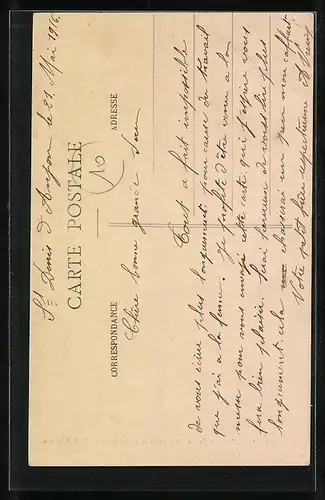 St Denis d'Anjou le 21 Mai 1916
CARTE POSTALE
10
CORRESPONDANCE
ADRESSE
Chère bonne grande Sœur
Tout à fait impossible
de vous écrire plus longuement pour cause de travail
que j'ai à la ferme. Je profite d'être venu à la
messe pour vous envoyer cette carte qui j'espère vous
fera bien plaisir. Serai heureux de vous lire plus
longuement cela chasserai un peu mon caffart
Votre petit frère respectueux